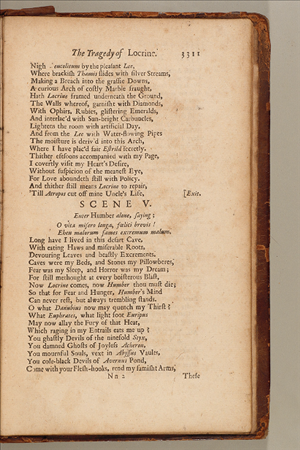 The Tragedy of Locrine. 3311
Nigh Deucolitum by the pleasant Lee,
Where brackish Thamis slides with silver Streams,
Making a Breach into the grassie Downs,
A curious Arch of costly Marble fraught,
Hath Locrine framed underneath the Ground,
The Walls whereof, garnisht with Diamonds,
With Ophirs, Rubies, glistering Emeralds,
And interlac'd with Sun-bright Carbuncles,
Lighten the room with artificial Day,
And from the Lee with Water-flowing Pipes
The moisture is deriv'd into this Arch,
Where I have plac'd fair Estrild secretly.
Thither eftsoons accompanied with my Page,
I covertly visit my Heart's Desire,
Without suspicion of the meanest Eye,
For Love aboundeth still with Policy.
And thither still means Locrine to repair,
'Till Atropos cut off mine Uncle's Life. [Exit.
SCENE V.
Enter Humber alone, saying;
O vita misero longa, fœlici brevis!
Eheu malorum fames extremum malum.
Long have I lived in this desart Cave,
With eating Haws and miserable Roots,
Devouring Leaves and beastly Excrements.
Caves were my Beds, and Stones my Pillowberes,
Fear was my Sleep, and Horror was my Dream;
For still methought at every boisterous Blast,
Now Locrine comes, now Humber thou must die;
So that for Fear and Hunger, Humber's Mind
Can never rest, but always trembling stands.
O what Danubius now may quench my Thirst?
What Euphrates, what light foot Euripus
May now allay the Fury of that Heat,
Which raging in my Entrails eats me up?
You ghastly Devils of the ninefold Styx,
You damned Ghosts of Joyless Acheron,
You mournful Souls, vext in Abyssus Vaults,
You cole-black Devils of Avernus Pond,
Come with your Flesh-hooks, rend my famisht Arms,
Nn 2 These